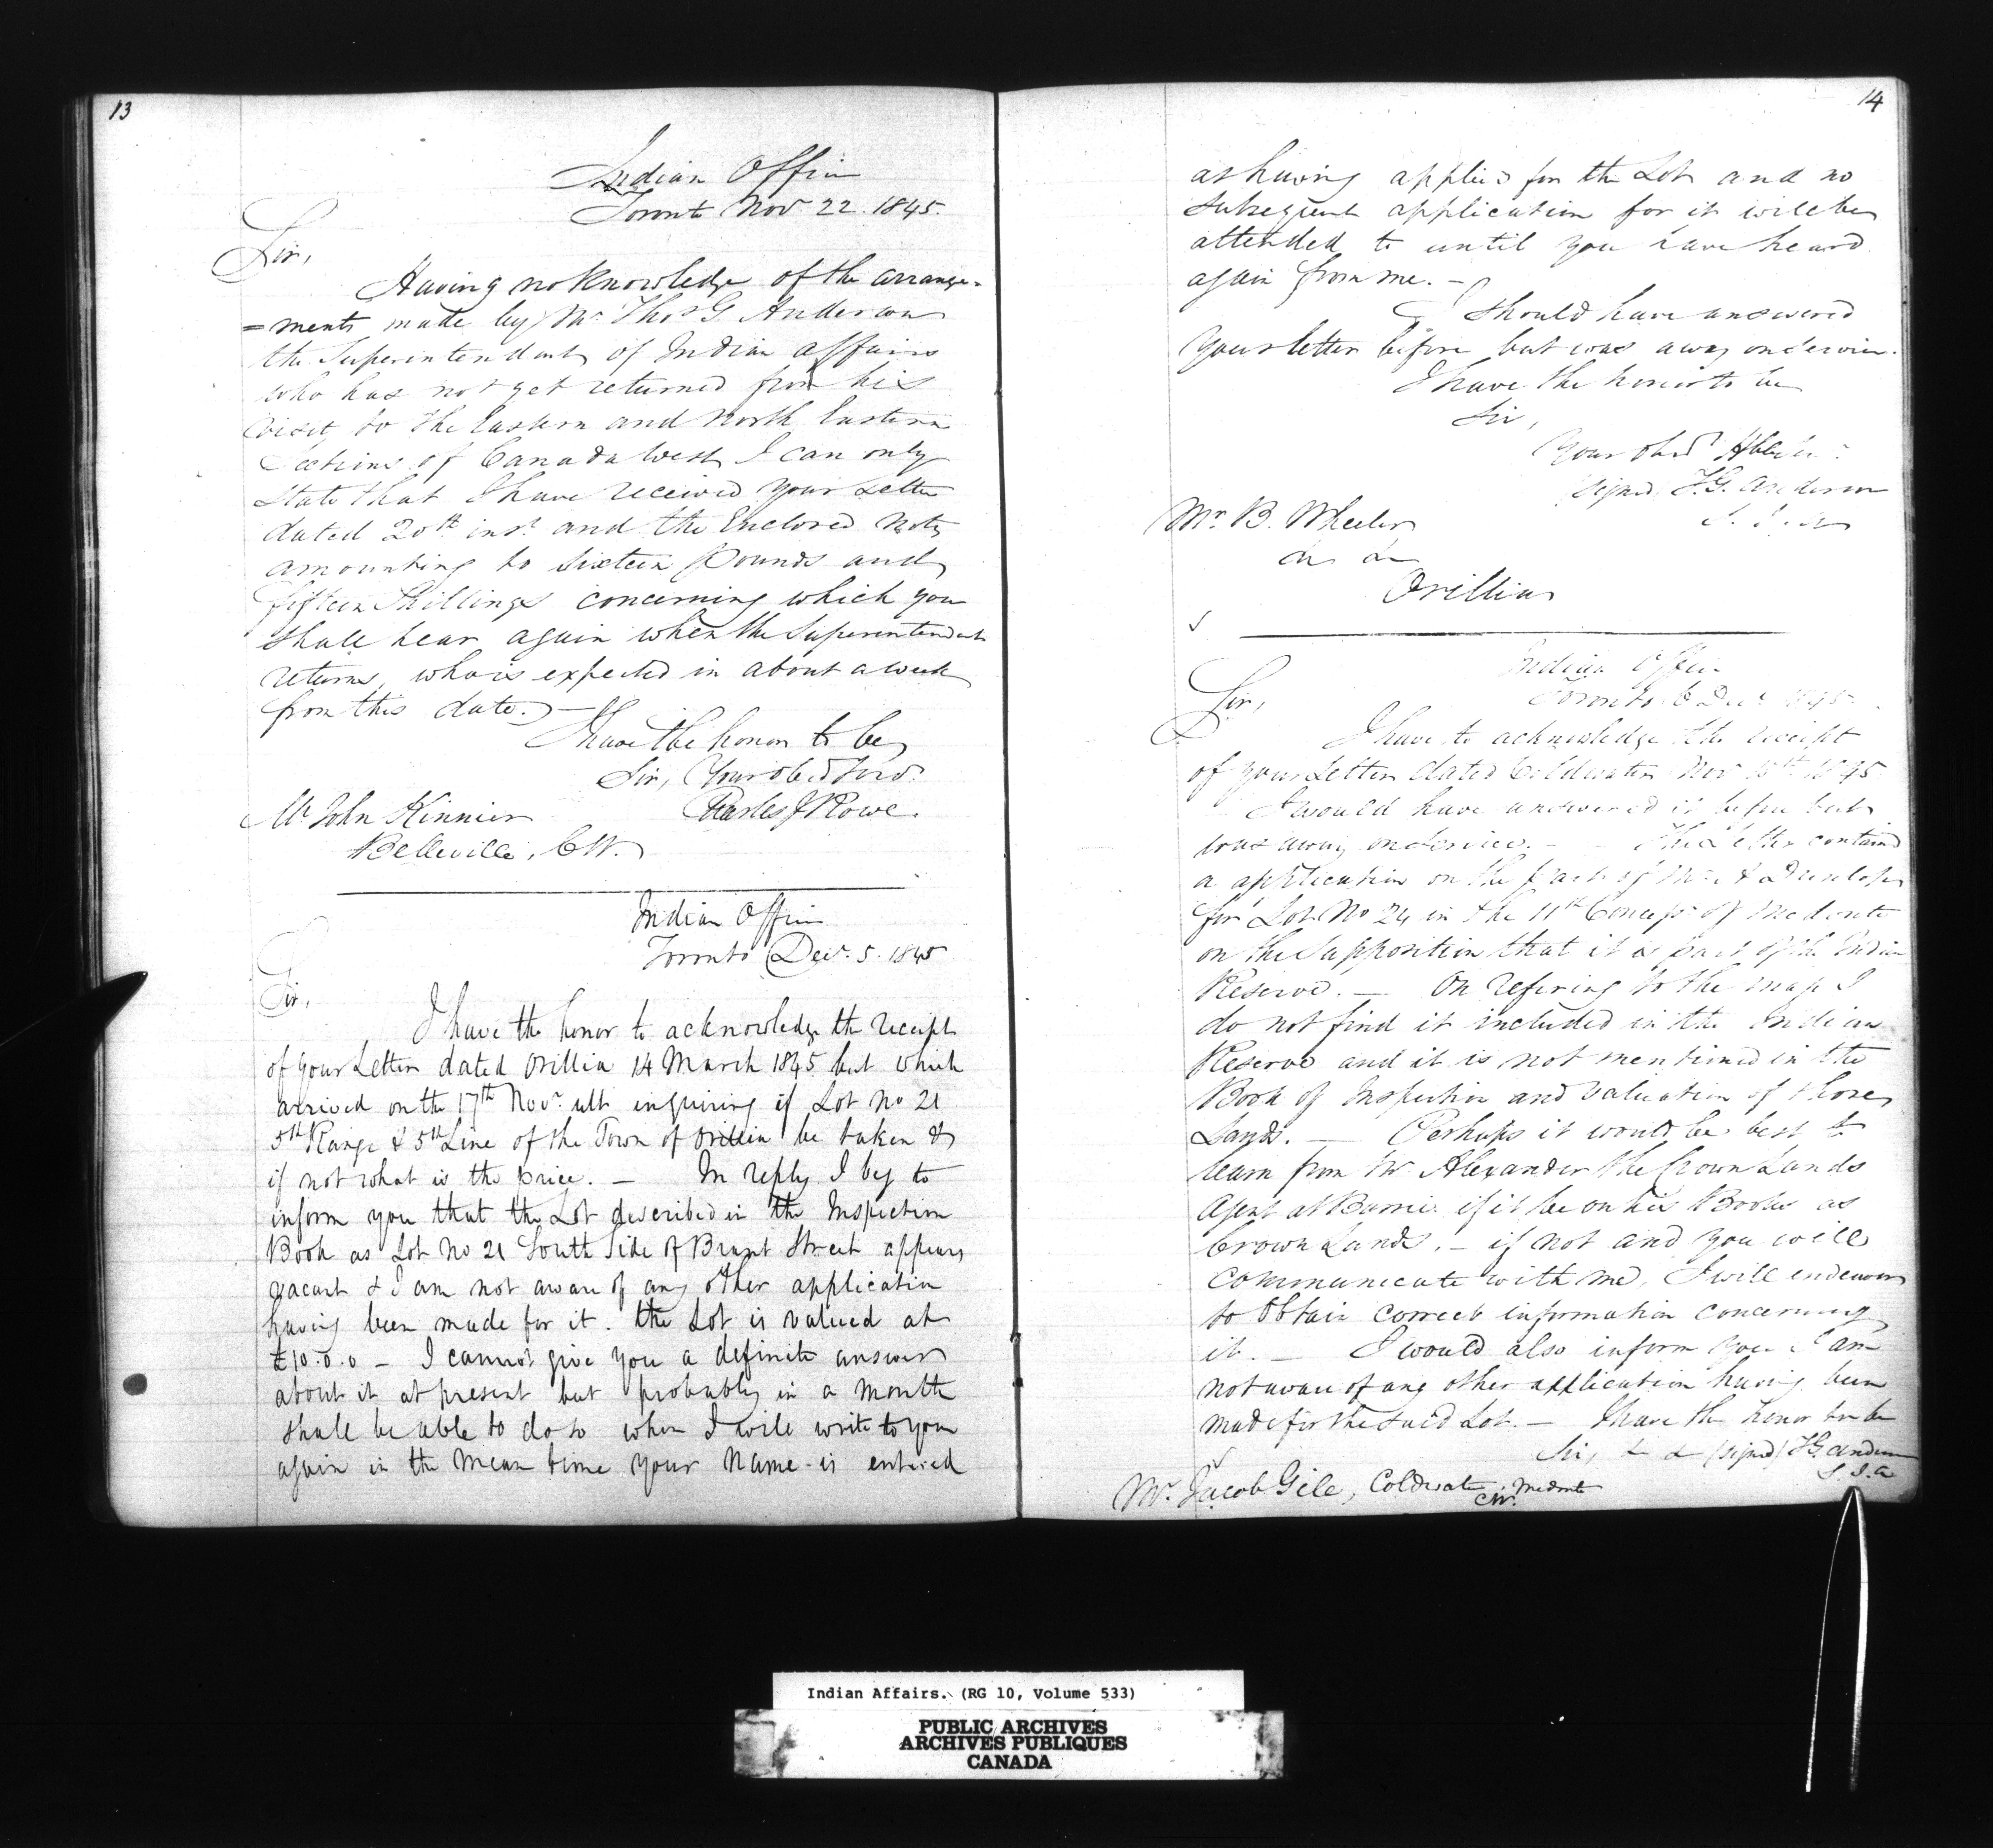 13
Indian Office
Toronto Nov. 22. 1845.
Sir,
Having no knowledge of the arrange-
=ments made by Mr. Thos G Anderson
the Superintendent of Indian affairs
who has not yet returned from his
visit to the Eastern and North Eastern
Sections of Canada West, I can only
state that I have received your Letter
dated 20th inst. and the Enclosed Note
amounting to Sixteen Pounds and
fifteen Shillings concerning which you
shall hear again when the Superintendent
returns, who is expected in about a week
from this date. —
I have the honor to be
Sir, Your obed Serv.
Charles J Rowe.
Mr John Kinnier
Belleville, C W.
Indian Office
Toronto Decr. 5. 1845
Sir,
I have the honor to acknowledge the receipt
of your Letter dated Orillia 14 March 1845 but which
arrived on the 17th Novr. ult inquiring if Lot No 21
5th Range & 5th Line of the Town of Orillia be taken &
if not what is the price. — In reply I beg to
inform you that the Lot described in the Inspection
Book as Lot No 21 South Side of Brant Street appears
vacant & I am not aware of any other application
having been made for it. the Lot is valued at
£10.0.0 — I cannot give you a definite answer
about it at present but probably in a month
shall be able to do so when I will write to you
again in the mean time your name is entered
14
as having applied for the Lot and no
subsequent application for it will be
attended to until you have heard
again from me. —
I should have answered
your letter before but was away on service.
I have the honor to be
Sir,
Your obed
signed T.G. Anderson
S. I. A
Mr. B. Wheeler
&c &c
Orillia
Indian Office
Toronto 6 Decr 1845.
Sir,
I have to acknowledge the receipt
of your Letter dated Coldwater Nov 1845
I would have answered it before but
was away on service. — The Letter contained
a application on the part of Mr. A Dunlop
for Lot No 24 in the 11th Concess. of Medonte
on the supposition that it is part of the Indian
Reserve. — On refering to the map I
do not find it included in the Indian
Reserve and it is not mentioned in the
Book of Inspection and valuation of those
Lands. — Perhaps it would be best to
learn from Mr Alexander the Crown Lands
Agent at Barrie if it be on his Books as
Crown Lands. — if not and you will
communicate with me, I will endeavour
to obtain correct information concerning
it. — I would also inform you I am
not aware of any other application having been
made for the said Lot. — I have the honor to be
Sir, & & (signed) T G. Anderson
S. I. A
Mr. Jacob Gile, Coldwater, Medonte
CW.
Indian Affairs. (RG 10, Volume 533)
PUBLIC ARCHIVES
ARCHIVES PUBLIQUES
CANADA